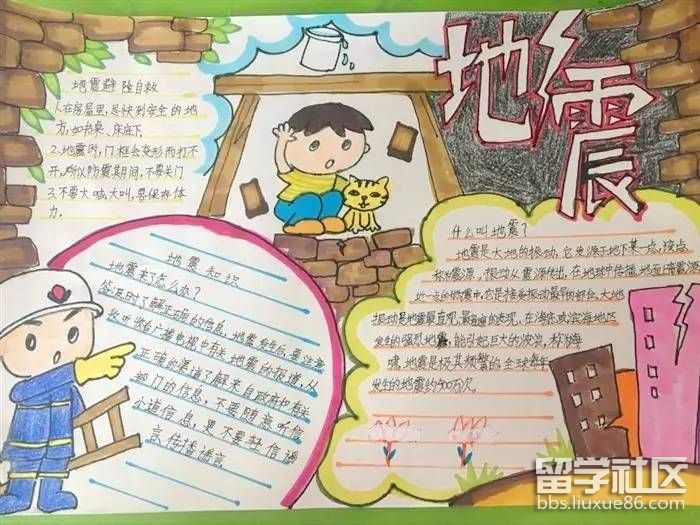 地震
地震避险自救
1.在房屋里,尽快到安全的地
方,如书桌、床底下
2.地震时,门框会变形而打不
开,所以防震期间,不要关门
3.不要大喊大叫,要保存体
力.
地震知识
地震来了怎么办?
及时了解正确的信息,地震发生后,要注意
收听收看广播电视中有关地震的报道,从
正确的渠道了解来自政府和有关
部门的信息,不要随意听信
小道信息,更不要轻信谣
言,传播谣言
什么叫地震?
地震是大地的振动,它发源于地下某一点,该点
称为震源。振动从震源传出,在地球中传播,地面上离震源
最近的一点
它是接受振动最早的部位。大地
振动是地震最直观、最普遍的表现,在海底或滨海地区
发生的强烈地震,能引起巨大的波浪,称为海
啸,地震是极其频繁的,全球每年
发生的地震约500万次。
留学社区
bbs.liuxue86.com